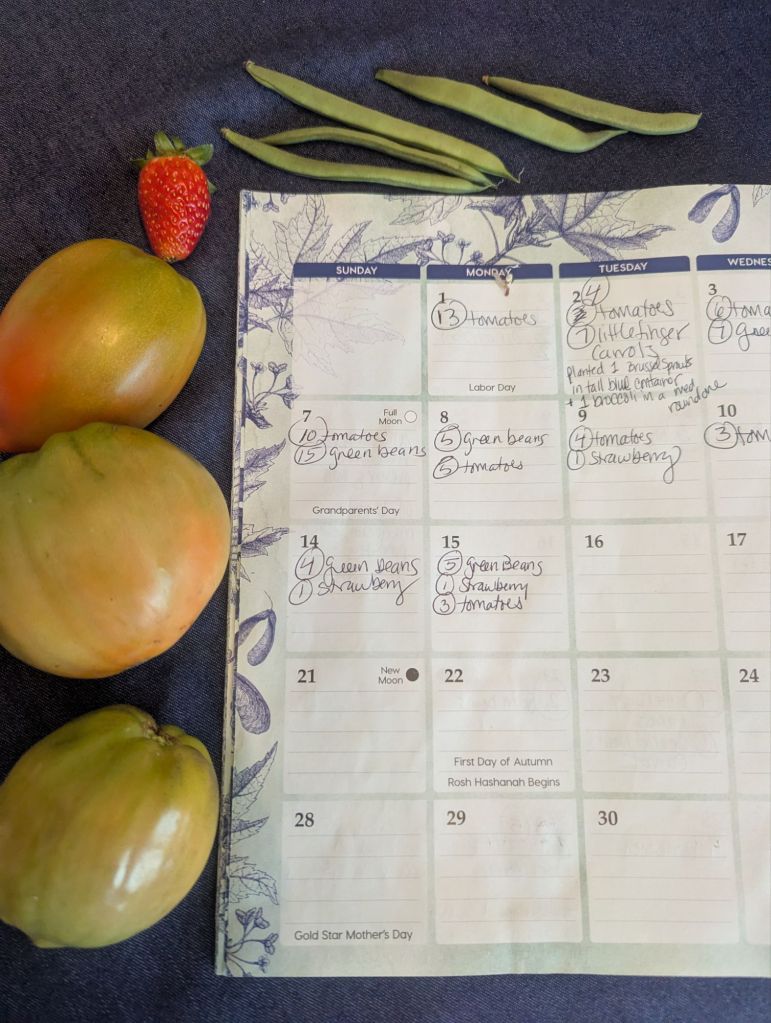 SUNDAY
MONDAY
TUESDAY
WEDNES
1
13 tomatoes
Labor Day
2
4 tomatoes
7 littlefinger
Carrots
planted 1 BrusselSprouts
in tall blue container
+ 1 broccoli in a med
round one
3
6 toma
7 gree
7
Full
Moon
10 tomatoes
15 green beans
Grandparents' Day
8
5 green beans
5 tomatoes
9
4 tomatoes
1 Strawberry
10
3 tom
14
4 green beans
1 Strawberry
15
5 green Beans
1 Strawberry
3 tomatoes
16
17
21
New
Moon
22
First Day of Autumn
Rosh Hashanah Begins
23
24
28
Gold Star Mother's Day
29
30